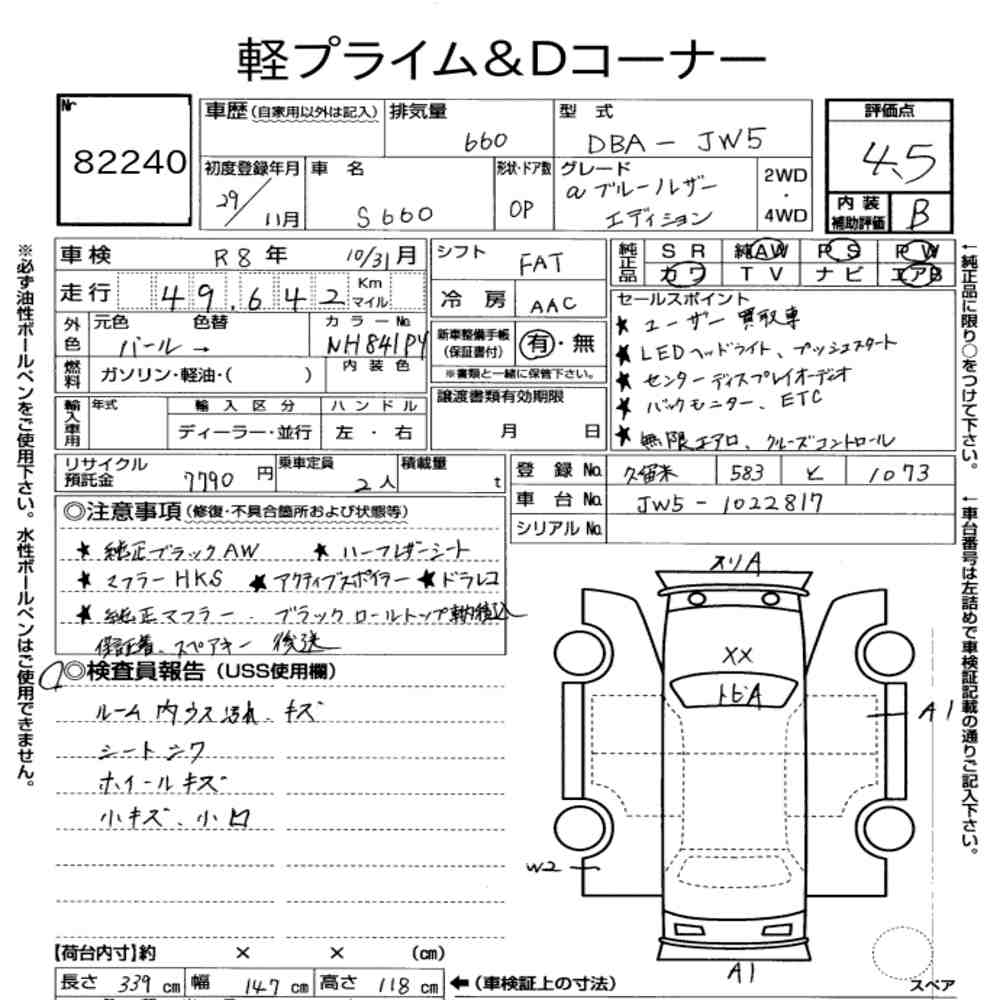 軽プライム&Dコーナー
Nr
82240
車歴(自家用以外は記入)
排気量
660
型 式
DBA-JW5
評価点
4.5
初度登録年月
29/11月
車 名
S660
形状・ドア数
OP
グレード
αブルーノレザー
エディション
2WD
・
4WD
内 装
補助評価
B
車検 R8年 10/31月
走行 49.642 Km
マイル
シフト
FAT
冷 房
AAC
純正品
SR 純AW PS PW
カワ TV ナビ エアB
外色
元色 色替
パール →
カラーNo.
NH841P4
燃料
ガソリン・軽油・( )
内 装 色
新車整備手帳
(保証書付)
有・無
※書類と一緒に保管下さい。
セールスポイント
★ ユーザー買取車
★ LEDヘッドライト、プッシュスタート
★ センターディスプレイオーディオ
★ バックモニター、ETC
★ 無限エアロ、クルーズコントロール
輸入車用
年式
輸 入 区 分
ディーラー・並行
ハ ン ド ル
左 ・ 右
譲渡書類有効期限
月 日
リサイクル
預託金
7790円
乗車定員
2人
積載量
t
登 録 No. 久留米 583 と 1073
車 台 No. JW5-1022817
シリアルNo.
◎注意事項(修復・不具合箇所および状態等)
★ 純正ブラックAW ★ ハーフレザーシート
★ マフラーHKS ★ アクティブスポイラー ★ ドラレコ
★ 純正マフラー、ブラックロールトップ車内積込
保証書、スペアキー 後送
◎検査員報告(USS使用欄)
ルーム内ウス汚れ、キズ
シートシワ
ホイールキズ
小キズ、小凹
スリA
XX
トビA
A1
W2
A1
スペア
【荷台内寸】約 × × (cm)
長さ 339 cm 幅 147 cm 高さ 118 cm
←(車検証上の寸法)
※必ず油性ボールペンをご使用下さい。水性ボールペンはご使用できません。
←純正品に限り○をつけて下さい。
←車台番号は左詰めで車検証記載の通りご記入下さい。